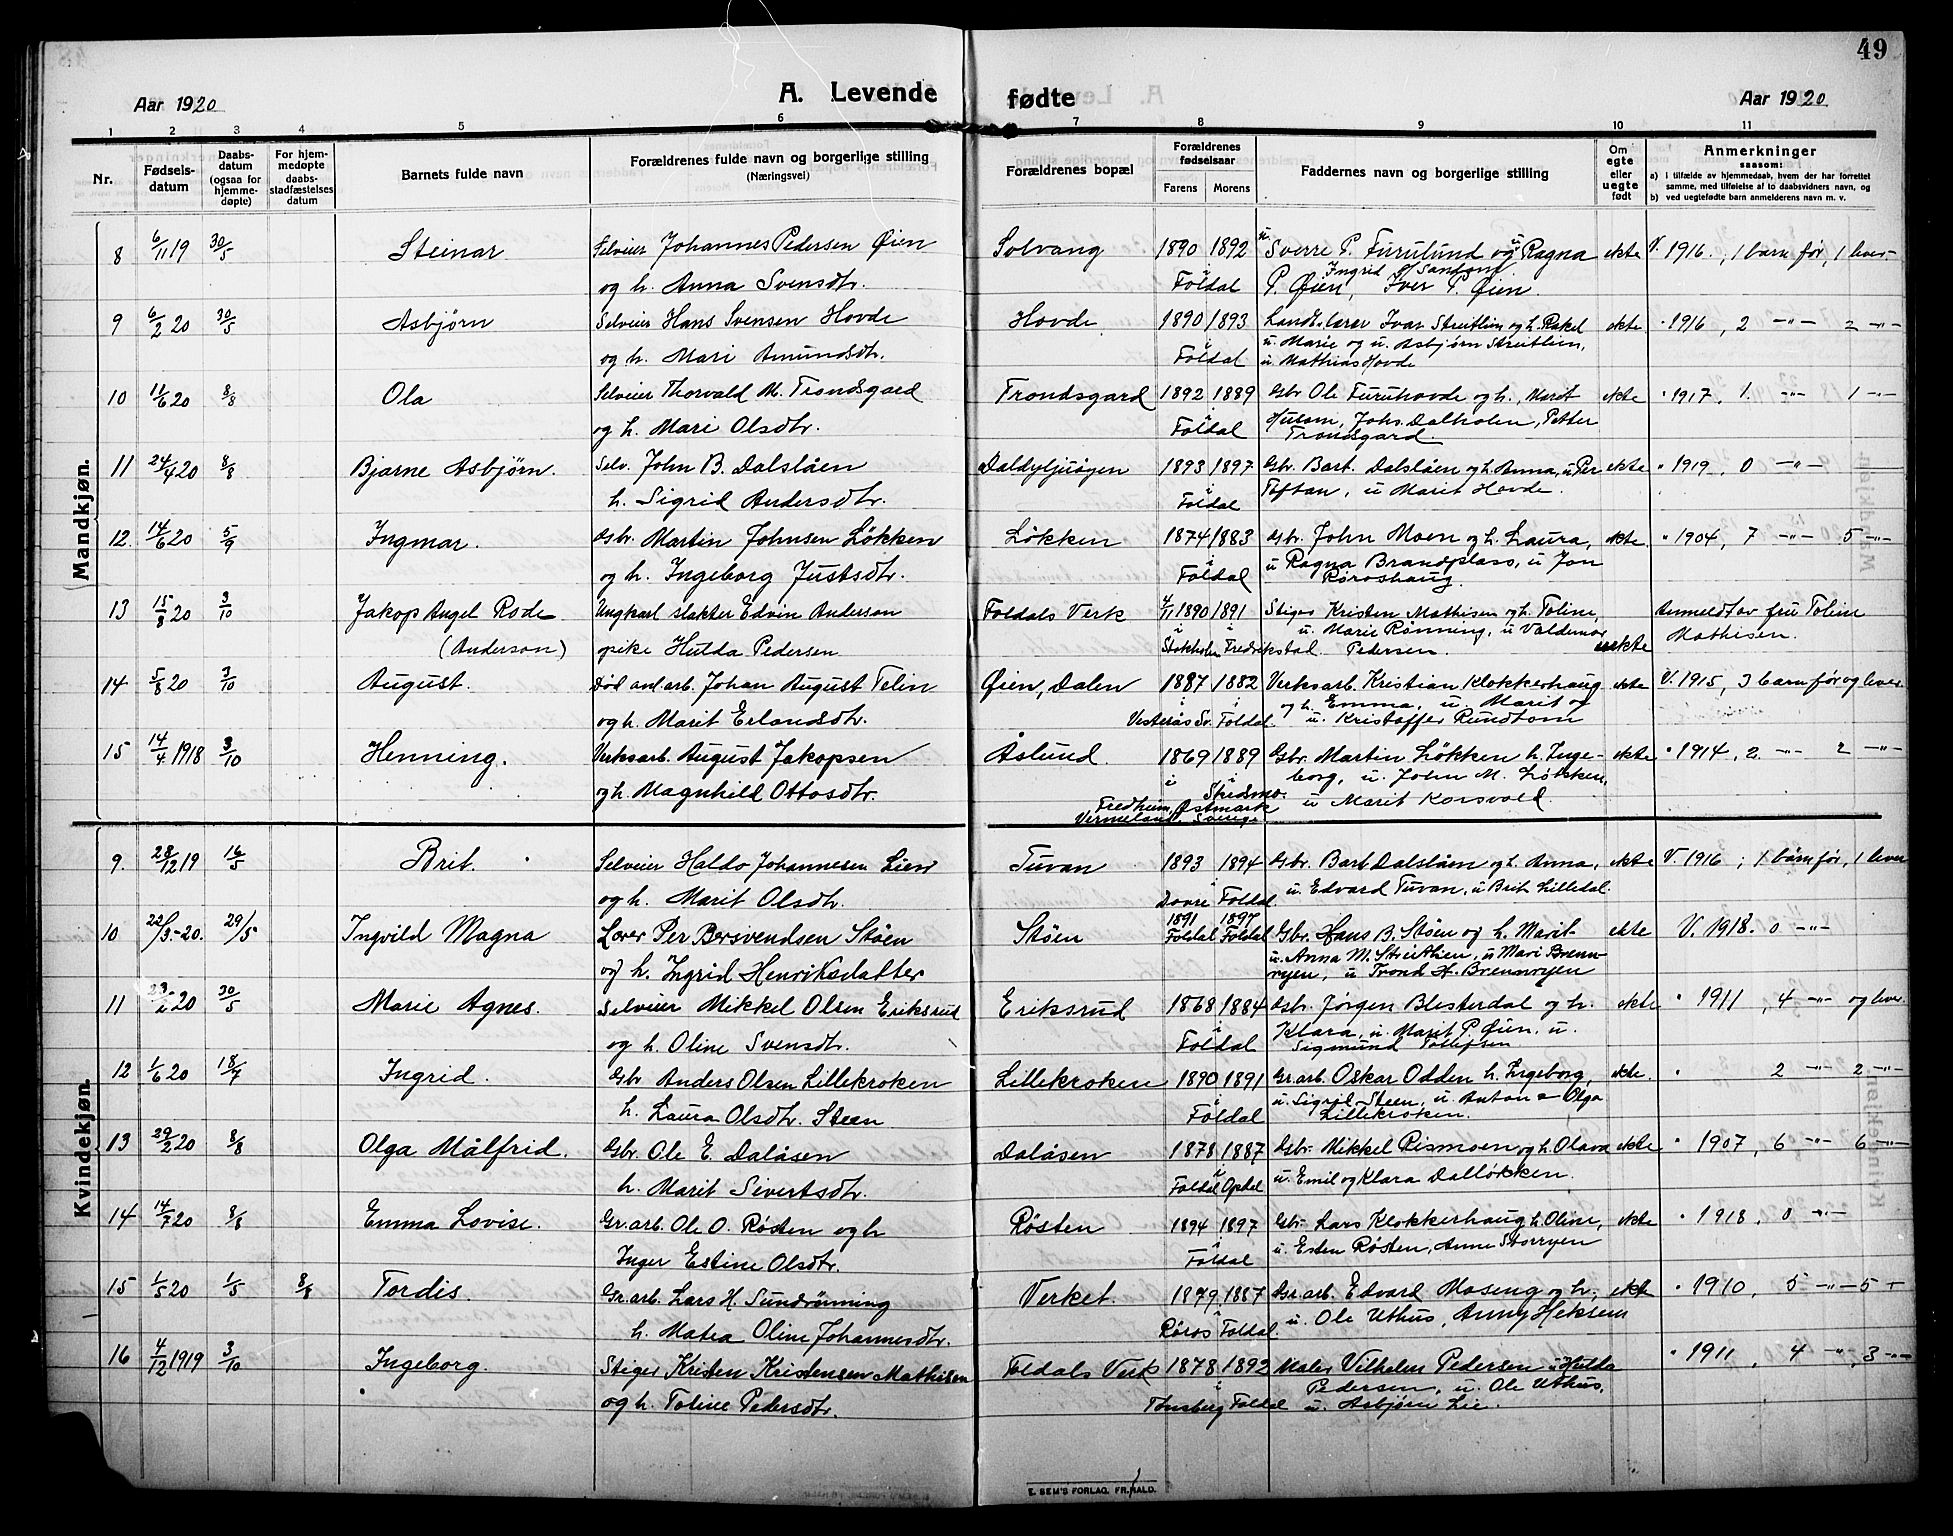 49
Aar 1920
A. Levende fødte
Aar 1920
1 2 3 4 5 6 7 8 9 10 11
Nr.
Fødsels-
datum
Daabs-
datum
(ogsaa for
hjemme-
døpte)
For hjem-
medøpte
daabs-
stadfæstelses
datum
Barnets fulde navn
Forældrenes fulde navn og borgerlige stilling
(Næringsvei)
Forældrenes bopæl
Forældrenes
fødselsaar
Farens Morens
Faddernes navn og borgerlige stilling
Om
egte
eller
uegte
født
Anmerkninger
saasom:
a) i tilfælde av hjemmedaab, hvem der har forrettet
samme, med tilføielse af to daabsvidners navn, og
b) ved uegtefødte barn anmelderens navn m. v.
Mandkjøn.
8 6/11 19 30/5 Steinar Selveier Johannes Pedersen Øien Solvang 1890 1892 u Sverre P. Furulund og u Ragna ekte V. 1916., 1 barn før, 1 lever
og h. Anna Svensdtr. i Foldal P. Øien, Ingrid Sandom. Iver P. Øien.
9 6/2 20 30/5 Asbjørn Selveier Hans Svensen Hovde Hovde 1890 1893 Landh.lærer Ivar Streitlien og h. Rakel ekte " 1916, 2 -"- 2 -"-
og h. Mari Amundsdtr. i Foldal u. Marie og u. Asbjørn Streitlien,
u Mathias Hovde
10 11/6 20 8/8 Ola Selveier Thorvald M. Trondsgard Trondsgard 1892 1889 Gbr Ole Furuhovde og h., Marit ekte " 1917, 1. -"- 1 -"-
og h. Mari Olsdtr. i Foldal Husom, Johs. Dalholen, Petter
Trondsgard.
11 24/4 20 8/8 Bjarne Asbjørn. Selv. John B. Dalslåen 1893 1897 Gbr. Bart. Dalslåen og h. Anna, u Per ekte " 1919, 0 -"-
h. Sigrid Andersdtr. i Foldal Toftan, u Marit Hovde.
12. 14/6 20 5/9 Ingmar. Gbr. Martin Johnsen Løkken Løkken 1874 1883 Gbr. John Moen og h. Laura, ekte. " 1904, 7 -"- 5 -"-
og h. Ingeborg Justsdtr. i Foldal u Ragna Brandplass, u Jon
Røroshaug.
13 15/8 20 3/10 Jakop Angel Rode Ungkarl slakter Edvin Anderson Foldals Verk 4/11 1890 1891 Stiger Kristen Mathisen og h. Toline, Anmeldt av fru Toline
(Anderson) pike Hulda Pedersen i Stokholm i Fredrikstad u. Marie Rønning, u Valdemar Pedersen. uekte Mathisen.
14 5/8 20 3/10 August. Død anl.arb. Johan August Telin Øien, Dalen 1887 1882 Verksarb. Kristian Klokkerhaug ekte V. 1915, 3 barn før og lever
og h. Marit Erlandsdtr. Vesterås Sv. Foldal. og h. Emma, u. Marit og
u. Kristoffer Rundtom
15 14/4 1918 3/10 Henning. Verksarb. August Jakopsen Åslund. 1869 1889 Gbr. Martin Løkken h. Inge- ekte. " 1914, 2. -"- 2 -"-
og h. Magnhild Ottosdtr. i i borg, u. John M. Løkken,
Skedsmo. u Marit Korsvold.
Vermeland. Sverige.
Kvindekjøn.
9. 28/12 19 16/5 Brit. Selveier Haldo Johannesen Lien Tuvan 1893 1894 Gbr. Bart Dalslåen og h. Anna, ekte V. 1916, 1 barn før, 1 lever
og h. Marit Olsdtr. Dovre Foldal u. Edvard Tuvan, u Brit Lilledal.
10 22/3.-20. 29/5 Ingvild Magna Lærer Per Bersvendsen Støen Støen 1891 Foldal 1897 Foldal Gbr. Hans B. Støen og h. Marit ekte V. 1918. 0 -"-
og h. Ingrid Henriksdatter u. Anna M. Streitlien, u Mari Brenn-
ryen, u Trond H. Brennryen
11 20 30/5 Marie Agnes. Selveier Mikkel Olsen Eriksrud Eriksrud 1868 1884 Gbr. Jørgen Blesterdal og h. ekte " 1911, 4 -"- og lever.
og h. Oline Svensdtr. i Foldal Klara, u. Marit P. Øien, u.
Sigmund Tollefsen
12 1/6 20 18/7 Ingrid. Gbr Anders Olsen Lillekroken Lillekroken 1890 1891 Gr.arb. Oskar Odden h. Ingeborg, ekte. " 2 -"- 2 -"-
h. Laura Olsdtr. Steen i Foldal u. Sigrid Steen, u. Anton & Olga
Lillekroken.
13 29/2 20 8/8 Olga Målfrid. Gbr. Ole E. Dalåsen Dalåsen 1878 1887 Gbr. Mikkel Rismoen og h. Olava ekte " 1907, 6 -"- 6 -"-
h. Marit Sivertsdtr. Foldal Opdal u. Emil og Klara Dalløkken.
14 14/7 20 8/8 Emma Lovise. Gr.arb. Ole O. Røsten og h Røsten 1894 1897 Gbr. Lars Klokkerhaug h. Oline, ekte " 1918, 0 -"-
Inger Estine Olsdtr. i Foldal u. Esten Røsten, Anne Storryen
15 1/5 20 1/5 8/8 Tordis. Gr.arb. Lars H. Sundrønning Verket. 1879 1887 Gr.arb. Edvard Moseng og h., ekte " 1910, 5 -"- 5 -"-
h. Matea Oline Johannesdtr. Røros Foldal. u. Ole Uthus, Anny Heksem
16 4/12 1919 3/10 Ingeborg. Stiger Kristen Kristensen Mathisen Foldals Verk 1878 1892 Maler Vilhelm Pedersen u Hulda " 1911, 4 -"-, 3 -"-
og h. Toline Pedersdtr. Tønsberg Foldal Pedersen, u. Ole Uthus,
u. Asbjørn Lie.
E. SEM'S FORLAG, FR.HALD.